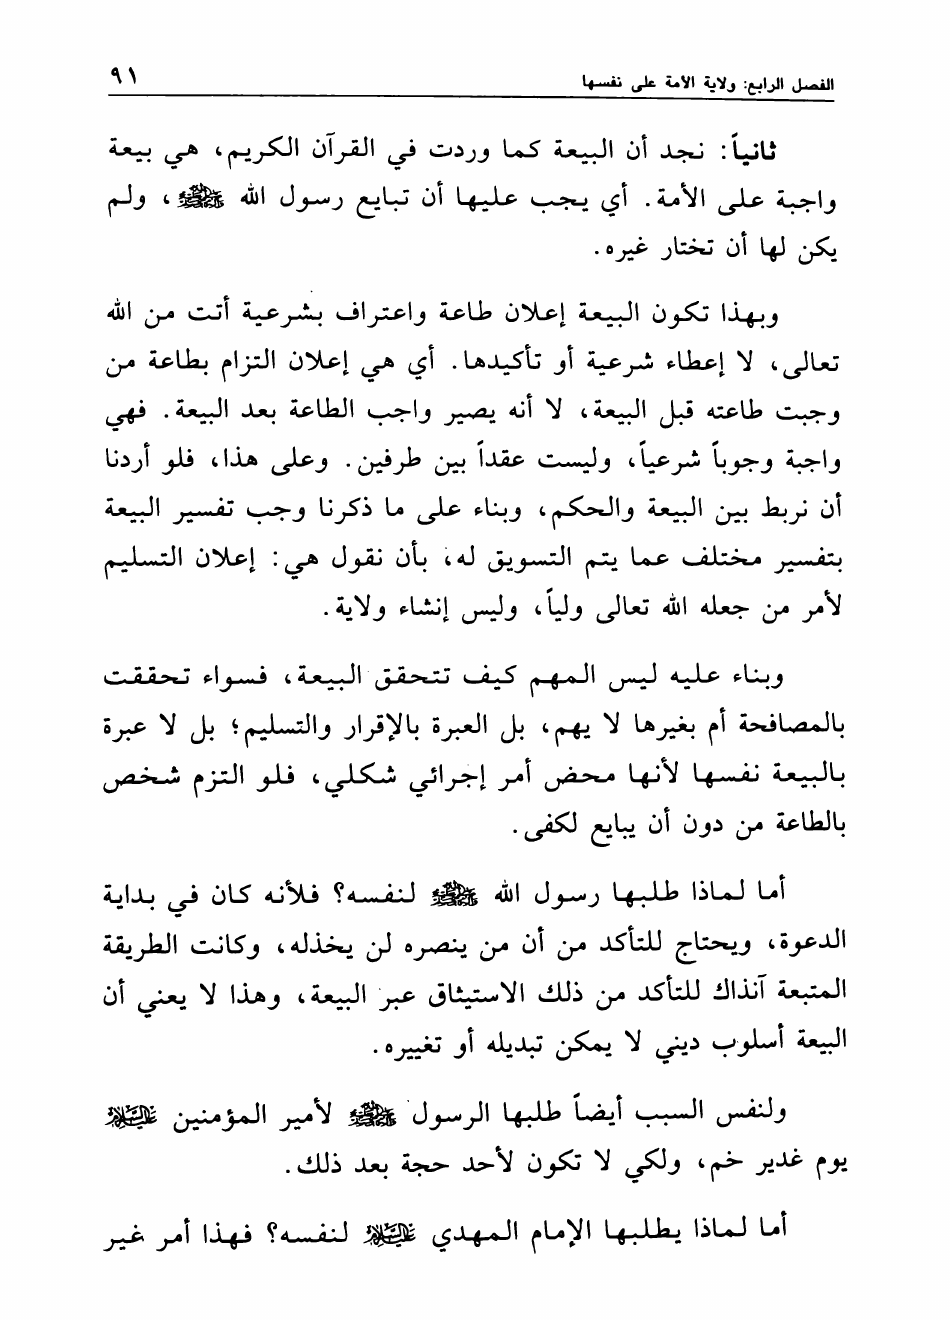 الفصل الرابع: ولاية الأمة على نفسها ٩١
ثانياً: نجد أن البيعة كما وردت في القرآن الكريم، هي بيعة
واجبة على الأمة. أي يجب عليها أن تبايع رسول الله ﷺ، ولم
يكن لها أن تختار غيره.
وبهذا تكون البيعة إعلان طاعة واعتراف بشرعية أتت من الله
تعالى، لا إعطاء شرعية أو تأكيدها. أي هي إعلان التزام بطاعة من
وجبت طاعته قبل البيعة، لا أنه يصير واجب الطاعة بعد البيعة. فهي
واجبة وجوباً شرعياً، وليست عقداً بين طرفين. وعلى هذا، فلو أردنا
أن نربط بين البيعة والحكم، وبناء على ما ذكرنا وجب تفسير البيعة
بتفسير مختلف عما يتم التسويق له، بأن نقول هي: إعلان التسليم
لأمر من جعله الله تعالى ولياً، وليس إنشاء ولاية.
وبناء عليه ليس المهم كيف تتحقق البيعة، فسواء تحققت
بالمصافحة أم بغيرها لا يهم، بل العبرة بالإقرار والتسليم؛ بل لا عبرة
بالبيعة نفسها لأنها محض أمر إجرائي شكلي، فلو التزم شخص
بالطاعة من دون أن يبايع لكفى.
أما لماذا طلبها رسول الله ﷺ لنفسه؟ فلأنه كان في بداية
الدعوة، ويحتاج للتأكد من أن من ينصره لن يخذله، وكانت الطريقة
المتبعة آنذاك للتأكد من ذلك الاستيثاق عبر البيعة، وهذا لا يعني أن
البيعة أسلوب ديني لا يمكن تبديله أو تغييره.
ولنفس السبب أيضاً طلبها الرسول ﷺ لأمير المؤمنين عليه السلام
يوم غدير خم، ولكي لا تكون لأحد حجة بعد ذلك.
أما لماذا يطلبها الإمام المهدي عليه السلام لنفسه؟ فهذا أمر غير